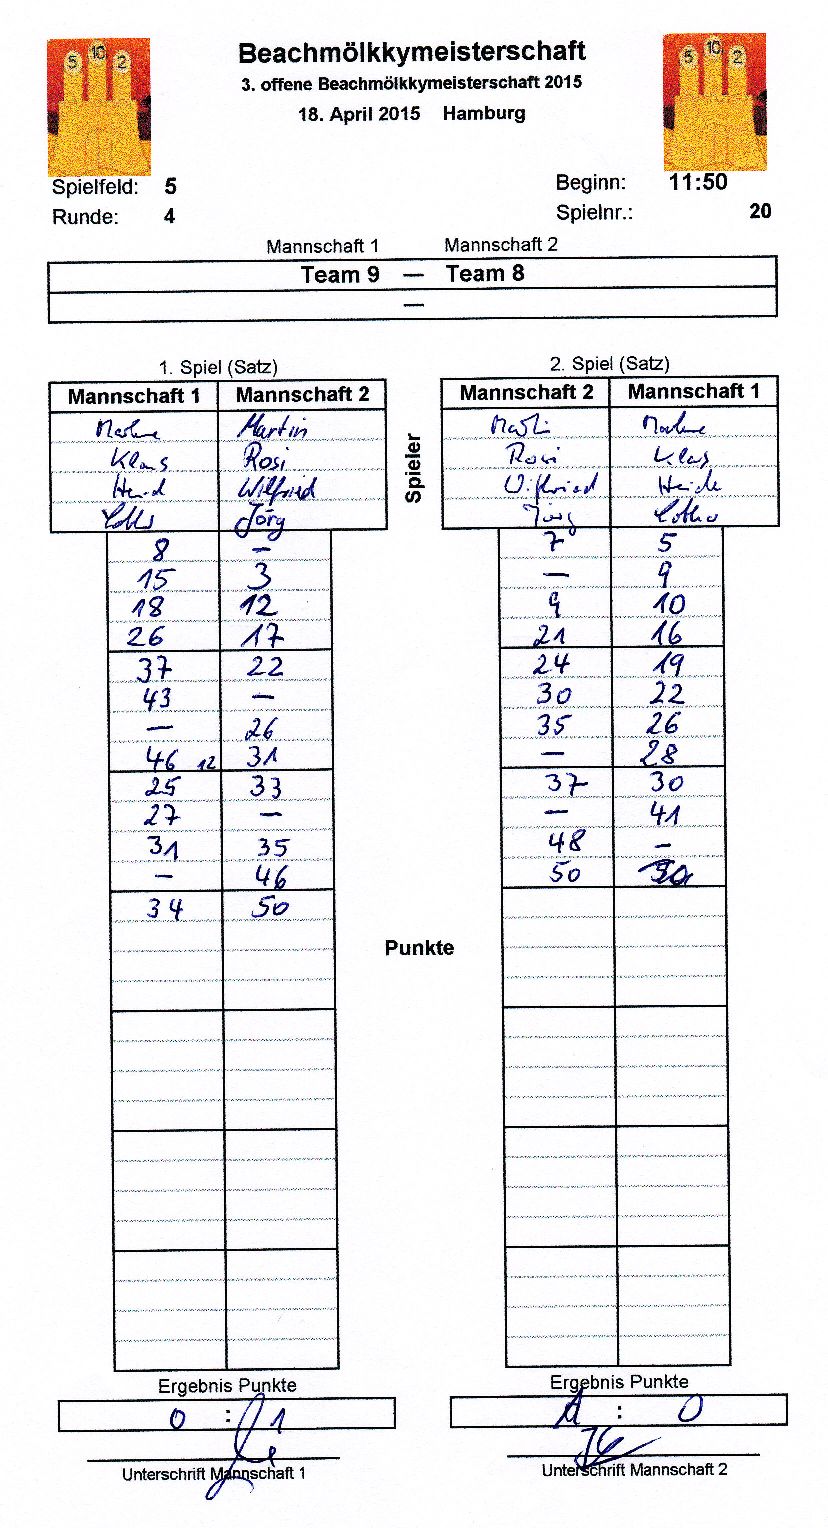 5 10 2 Beachmölkkymeisterschaft 5 10 2
3. offene Beachmölkkymeisterschaft 2015
18. April 2015 Hamburg
Spielfeld: 5 Beginn: 11:50
Runde: 4 Spielnr.: 20
Mannschaft 1 Mannschaft 2
Team 9 — Team 8
—
1. Spiel (Satz) 2. Spiel (Satz)
Mannschaft 1 Mannschaft 2 Mannschaft 2 Mannschaft 1
Martin
Klaus Rosi Rosi Klas
Heid Wilfried Wilfried Heide
Jörg Jörg Lothar
Spieler
8 — 7 5
15 3 — 9
18 12 9 10
26 17 21 16
37 22 24 19
43 — 30 22
— 26 35 26
46 12 31 — 28
25 33 37 30
27 — — 41
31 35 48 —
— 46 50
34 50
Punkte
Ergebnis Punkte Ergebnis Punkte
0 : 1 1 : 0
Unterschrift Mannschaft 1 Unterschrift Mannschaft 2